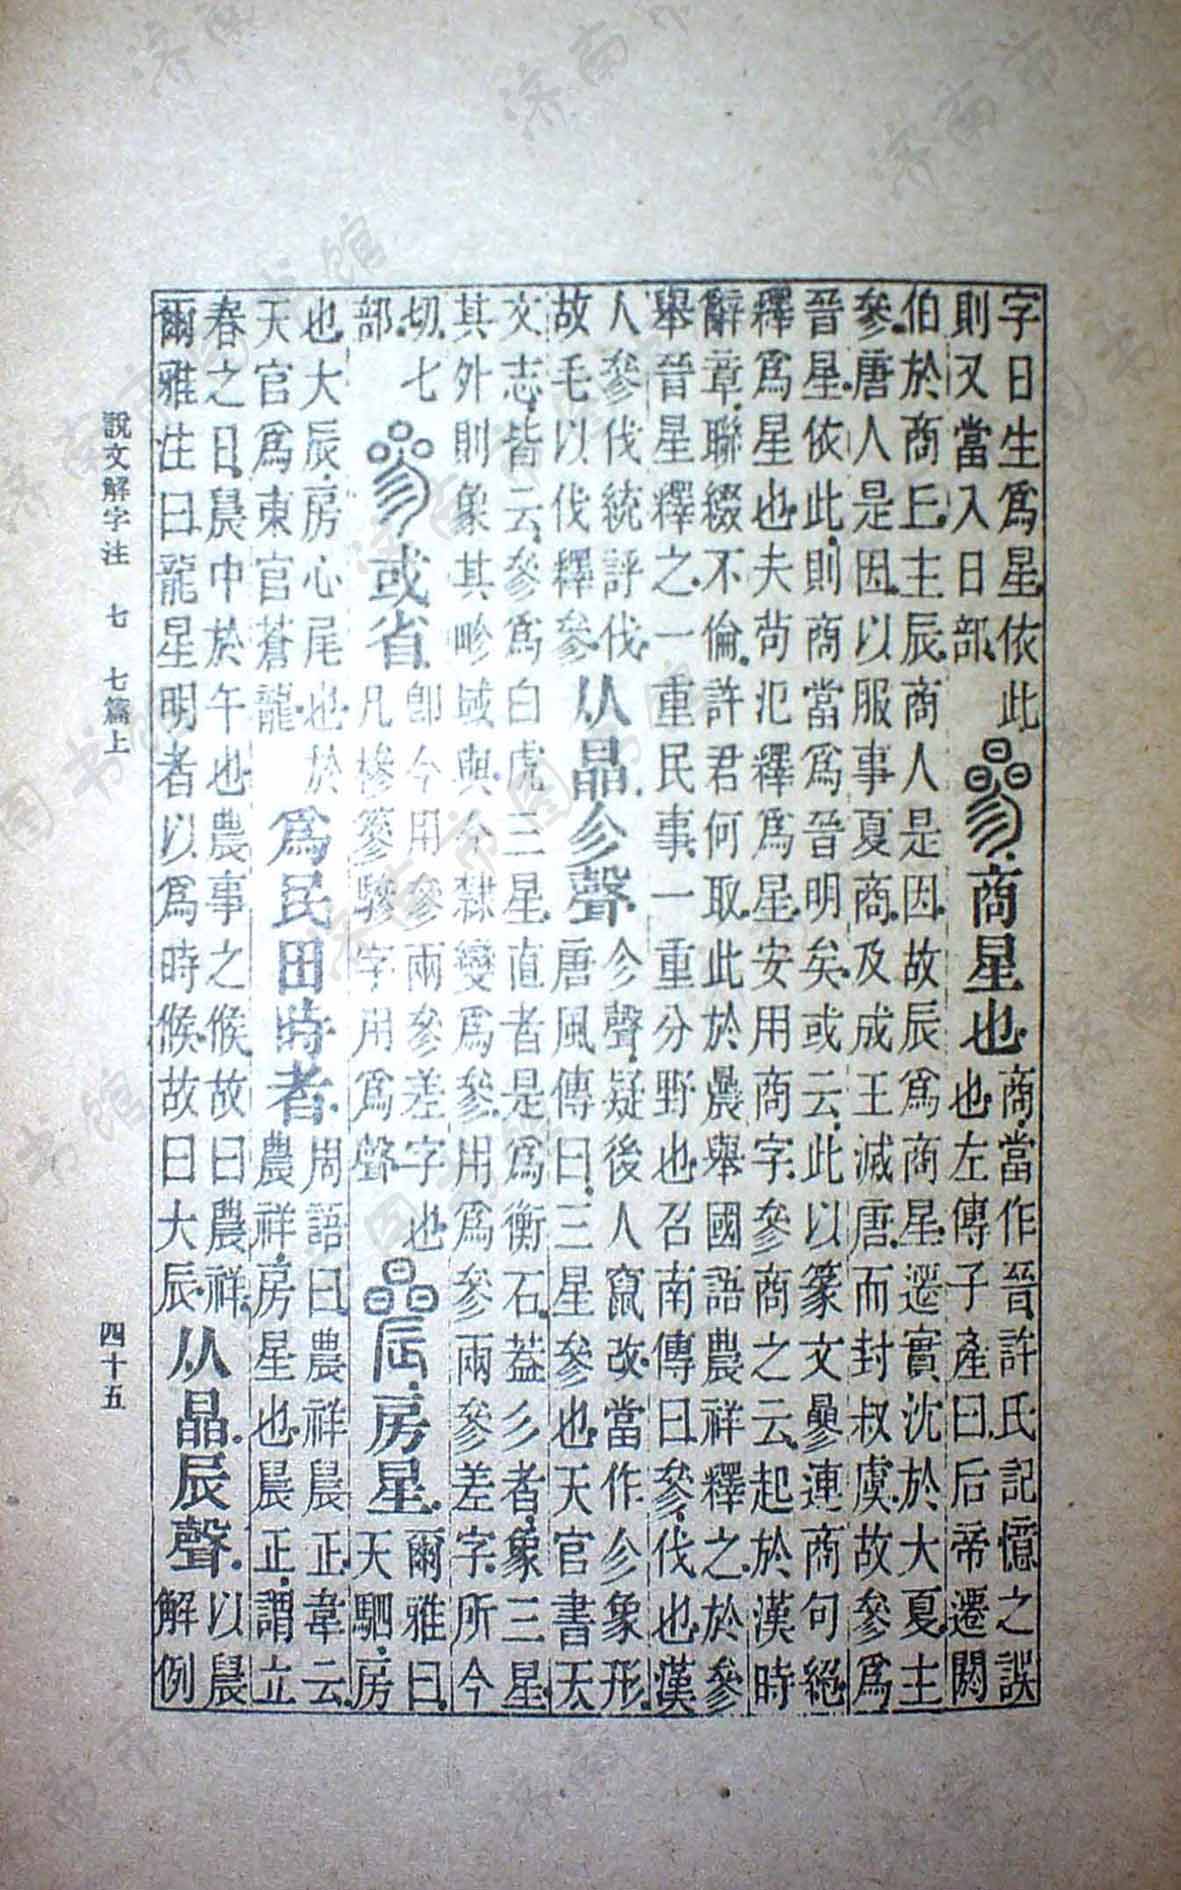 字日生爲星依此
則又當入日部
曑商星也
商當作晉許氏記憶之誤
也左傳子產曰后帝遷閼
伯於商丘主辰商人是因故辰爲商星遷實沈於大夏主
參唐人是因以服事夏商及成王滅唐而封叔虞故參爲
晉星依此則商當爲晉明矣或云此以篆文曑連商句絕
釋爲星也夫苟氾釋爲星安用商字參商之云起於漢時
辭章聯綴不倫許君何取此於農舉國語農祥釋之於參
舉晉星釋之一重民事一重分野也召南傳曰參伐也漢
人參伐統評伐
故毛以伐釋參
从晶㐱聲
㐱聲疑後人竄改當作㐱象形
唐風傳曰三星參也天官書天
文志皆云參爲白虎三星直者是爲衡石葢彡者象三星
其外則象其畛域與今隸變爲參用爲參兩參差字所今
切七
部
曑或省
卽今用參兩參差字也
凡槮篸驂字用爲聲
曟房星
爾雅曰
天駟房
也大辰房心尾也於
天官爲東官蒼龍
爲民田時者
周語曰農祥晨正韋云
農祥房星也晨正謂立
春之日晨中於午也農事之候故曰農祥
爾雅注曰龍星明者以爲時候故曰大辰
从晶辰聲
以晨
解例
說文解字注 七 七篇上
四十五